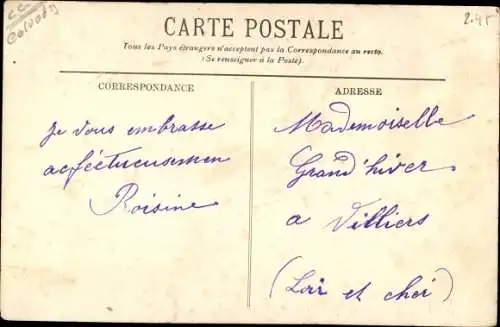 CC
Calvados
2.45
CARTE POSTALE
Tous les Pays étrangers n'acceptent pas la Correspondance au recto.
(Se renseigner à la Poste).
CORRESPONDANCE
Je vous embrasse
acféctueusemen
Roisine
ADRESSE
Mademoiselle
Grand'hiver
a Villiers
(Loir et cher)